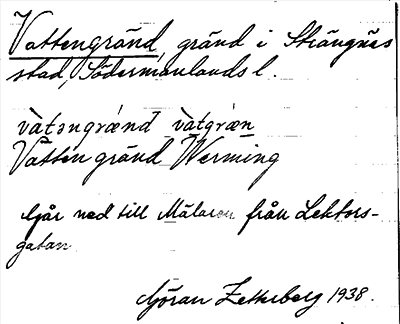 Vattengränd, gränd i Strängnäs
stad, Södermanlands l.
vàtəngrænd vàtgræn
Vatten gränd Werming
Går ned till Mälaren från Lektors-
gatan
Göran Zetterberg 1938.